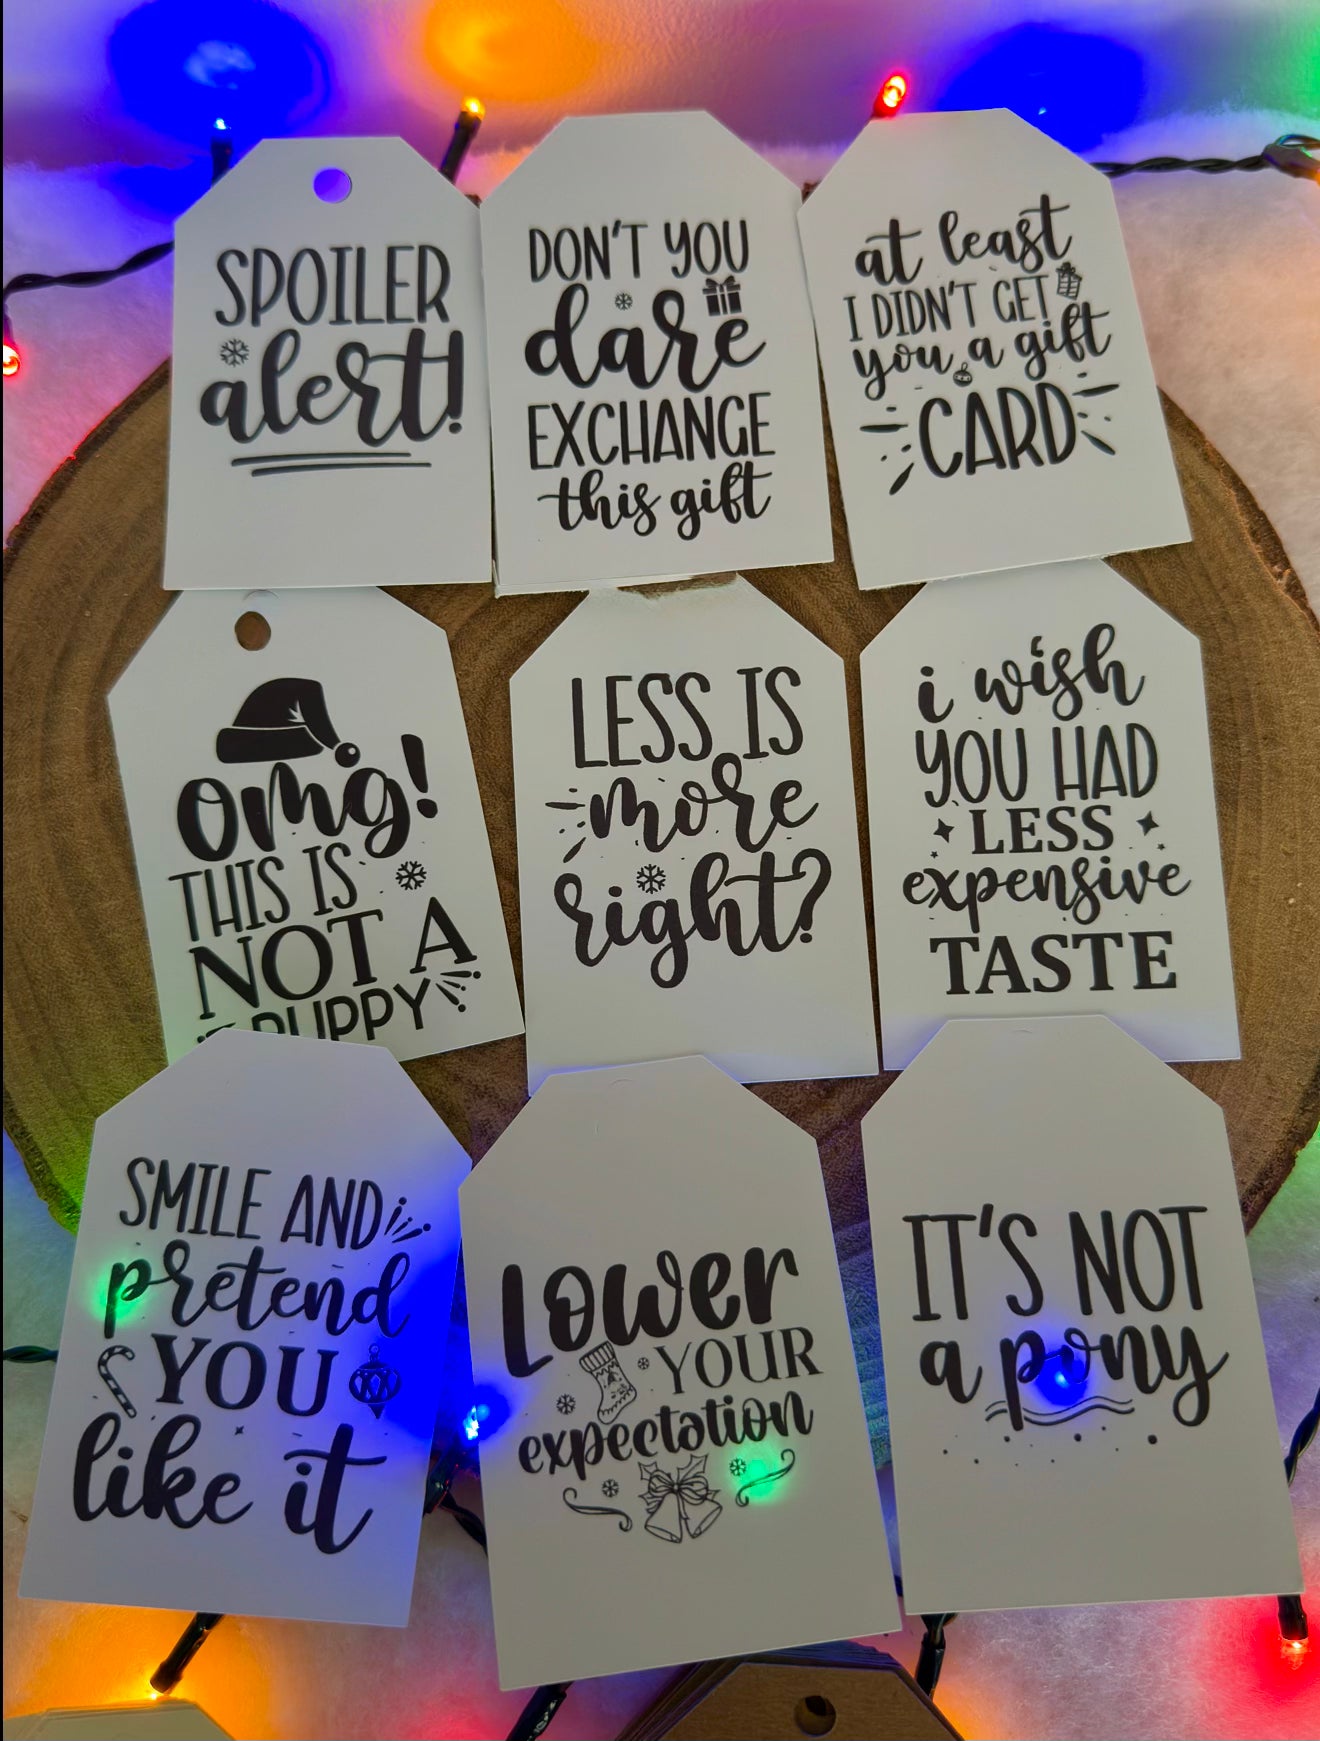 SPOILER
alert!
DON'T YOU
dare
EXCHANGE
this gift
at least
I DIDN'T GET
you a gift
CARD
omg!
THIS IS
NOT A
PUPPY
LESS IS
more
right?
i wish
YOU HAD
LESS
expensive
TASTE
SMILE AND
pretend
YOU
like it
Lower
YOUR
expectation
IT'S NOT
a pony